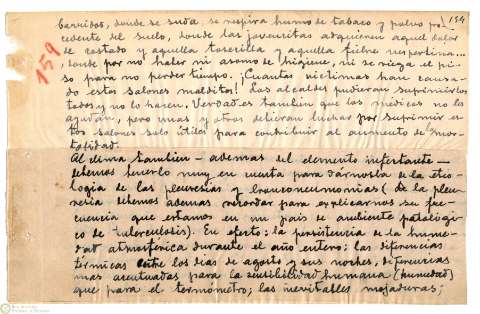 154
159
barridos, donde se suda, se respira humo de tabaco y polvo pro-
cedente del suelo, donde las jovencitas adquieren aquel dolor
de costado y aquella tosecilla y aquella fiebre vespertina...,
donde por no haber ni asomo de higiene, ni se riega el pi-
so para no perder tiempo. ¡Cuantas victimas han causa-
do estos salones malditos! Los alcaldes pudieran suprimirlos
todos y no lo hacen. Verdad es tambien que los médicos no los
ayudan, pero unos y otros debieran luchar por suprimir es-
tos salones solo útiles para contribuir al aumento de la mor-
talidad.
Al clima tambien - ademas del elemento infectante -
debemos tenerlo muy en cuenta para darnosla de la etio-
logia de las pleuresias y bronconeumonias (de la pleu-
resia debemos ademas recordar para explicarnos su fre-
cuencia que estamos en un pais de ambiente patologi-
co de tuberculosis). En efecto: la persistencia de la hume-
dad atmosférica durante el año entero; las diferencias
térmicas entre los dias de agosto y sus noches, diferencias
mas acentuadas para la sensibilidad humana (humedad)
que para el termometro; las inevitables mojaduras;